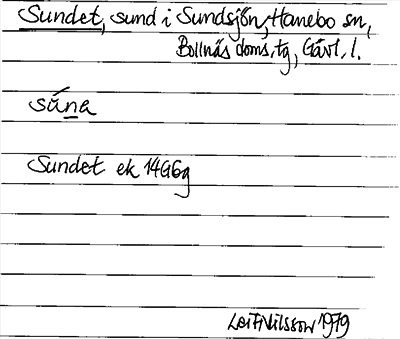 Sundet, sund i Sundsjön, Hanebo sn,
Bollnäs doms.tg, Gävl. l.
súna
Sundet ek 14G6g
Leif Nilsson 1979